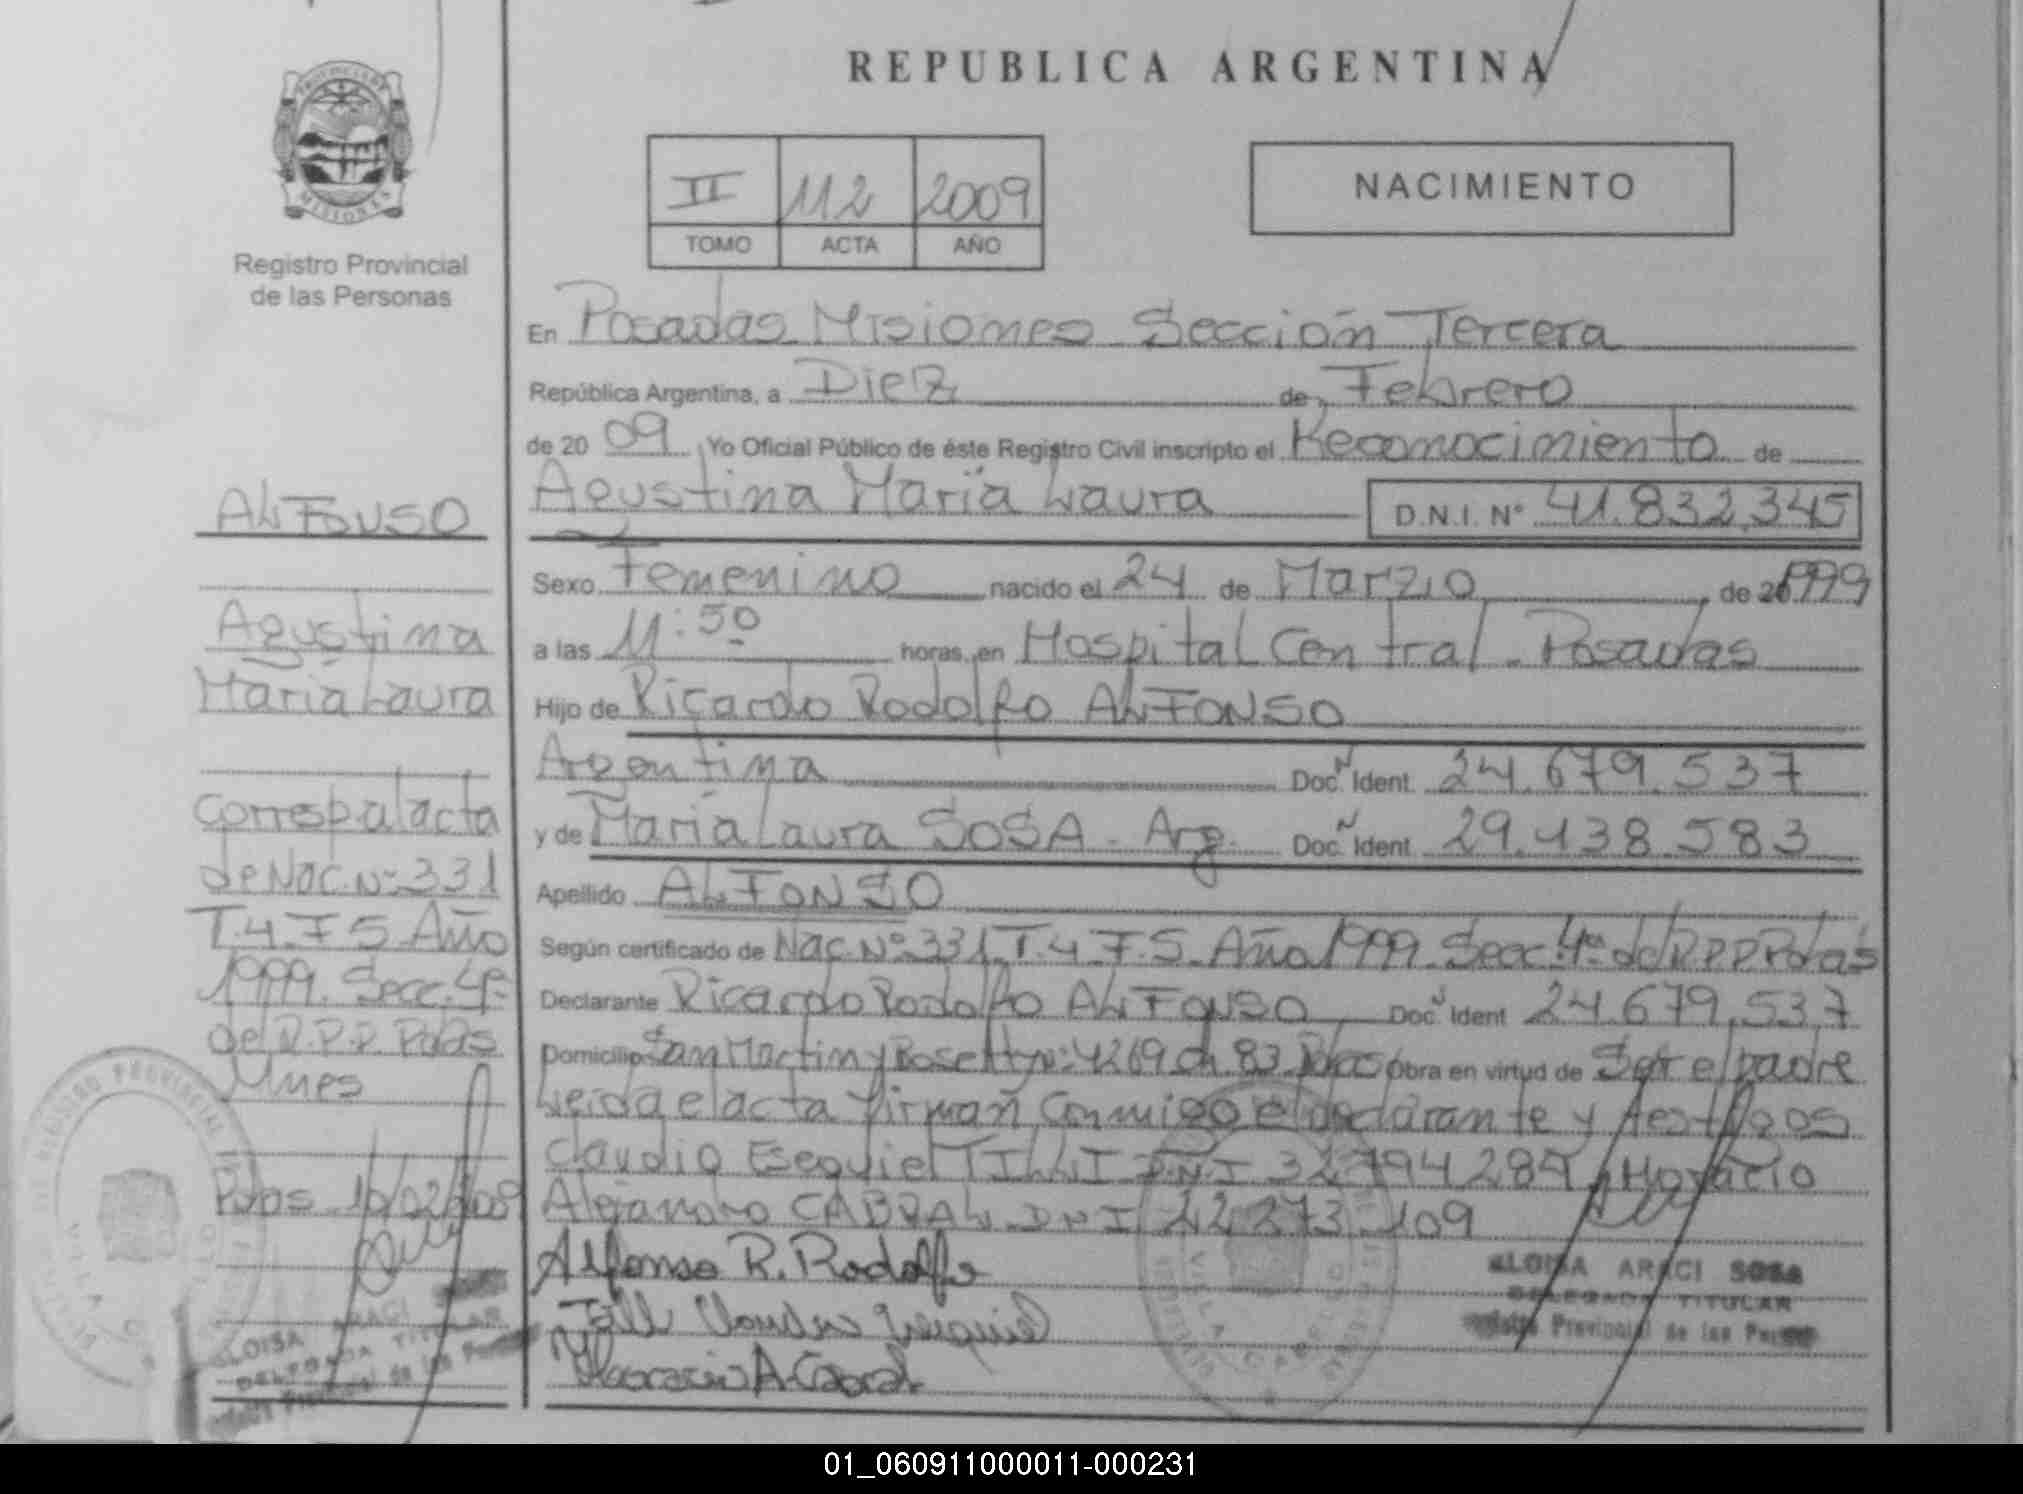 REPUBLICA ARGENTINA
PROVINCIA DE
MISIONES
Registro Provincial
de las Personas
II 112 2009
TOMO ACTA AÑO
NACIMIENTO
En Posadas Misiones Sección Tercera
República Argentina, a Diez de Febrero
de 20 09 Yo Oficial Público de éste Registro Civil inscripto el Reconocimiento de
Agustina María Laura D.N.I. Nº 41.832.345
Sexo Femenino nacido el 24 de Marzo de 1999
a las 11:50 horas, en Hospital Central - Posadas
Hijo de Ricardo Rodolfo ALFONSO
Argentina Doc. N Ident. 24.679.537
y de María Laura SOSA - Arg. Doc. N Ident. 29.438.583
Apellido ALFONSO
Según certificado de Nac. Nº 331 T.4 F.5 Año 1999 Secc. 4ª del R.P.P. Pdas
Declarante Ricardo Rodolfo ALFONSO Doc. N Ident 24.679.537
Domicilio San Martin y Rosetty Nº 4269 ch. 83 Pdas Obra en virtud de Ser el padre
Leida el acta firman conmigo el declarante y testigos
Claudio Esequiel TILLI DNI 32794289, Horacio
Alejandro CABRAL DNI 22 273 109
Alfonso R. Rodolfo
Horacio A. Cabral
ELOISA ARACI SOSA
DELEGADA TITULAR
Registro Provincial de las Personas
ALFONSO
Agustina
María Laura
Corresp al acta
de Nac. Nº 331
T.4 F 5 Año
1999 Secc. 4ª
del R.P.P. Pdas
Mnes
Pdas 10/02/2009
ELOISA ARACI
DELEGADA TITULAR
Provincial de las
01_060911000011-000231